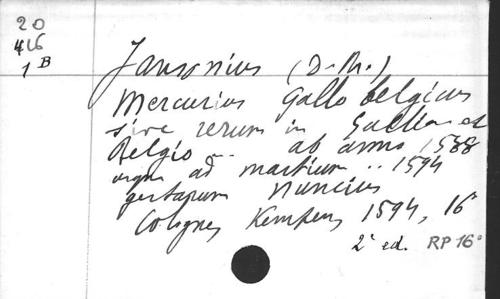 20
416
1 B
Jansonius (D. M.)
Mercurius Gallo belgicus
sive rerum in Gallia et
Belgio .. ab anno 1588
usque ad martium .. 1594
gestarum nuncius
Cologne, Kempen, 1594, 16°
2e ed. RP 16°